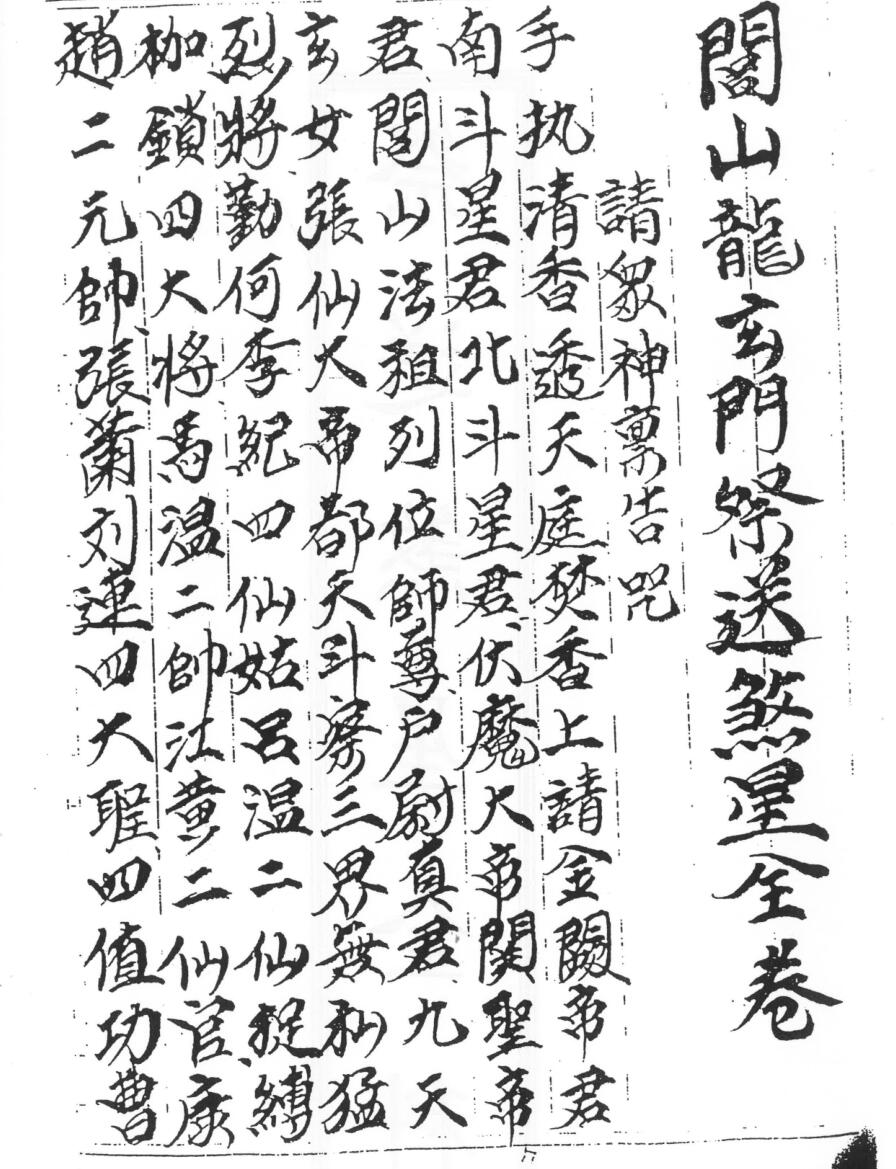 閭山龍玄門祭送煞星全卷
請眾神禀告咒
手执清香透天庭焚香上請金闕帝君
南斗星君北斗星君伏魔大帝関聖帝
君閭山法祖列位師尊户尉真君九天
玄女張仙大帝都天斗察三界無私猛
烈將勤何李紀四仙姑呂温二仙捉縛
枷鎖四大将馬温二帥江黄二仙官康
趙二元帥張蕭刘連四大聖四值功曹